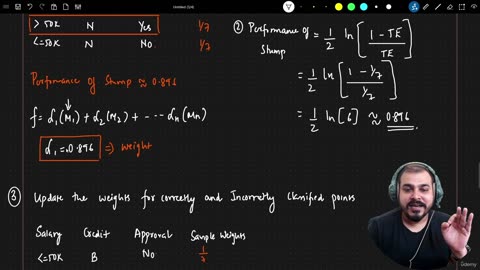 Untitled (14)
> 50K N Yes 1/7
<=50K N No 1/7
Performance of Stump ≈ 0.896
f = α1(M1) + α2(M2) + ---- αn(Mn)
α1 = 0.896 ⇒ weight
② Performance of Stump = 1/2 ln [ 1 - TE / TE ]
= 1/2 ln [ 1 - 1/7 / 1/7 ]
= 1/2 ln [6] ≈ 0.896.
③ Update the weights for correctly and Incorrectly classified points
Salary Credit Approval Sample Weights
<=50K B No 1/7
Udemy